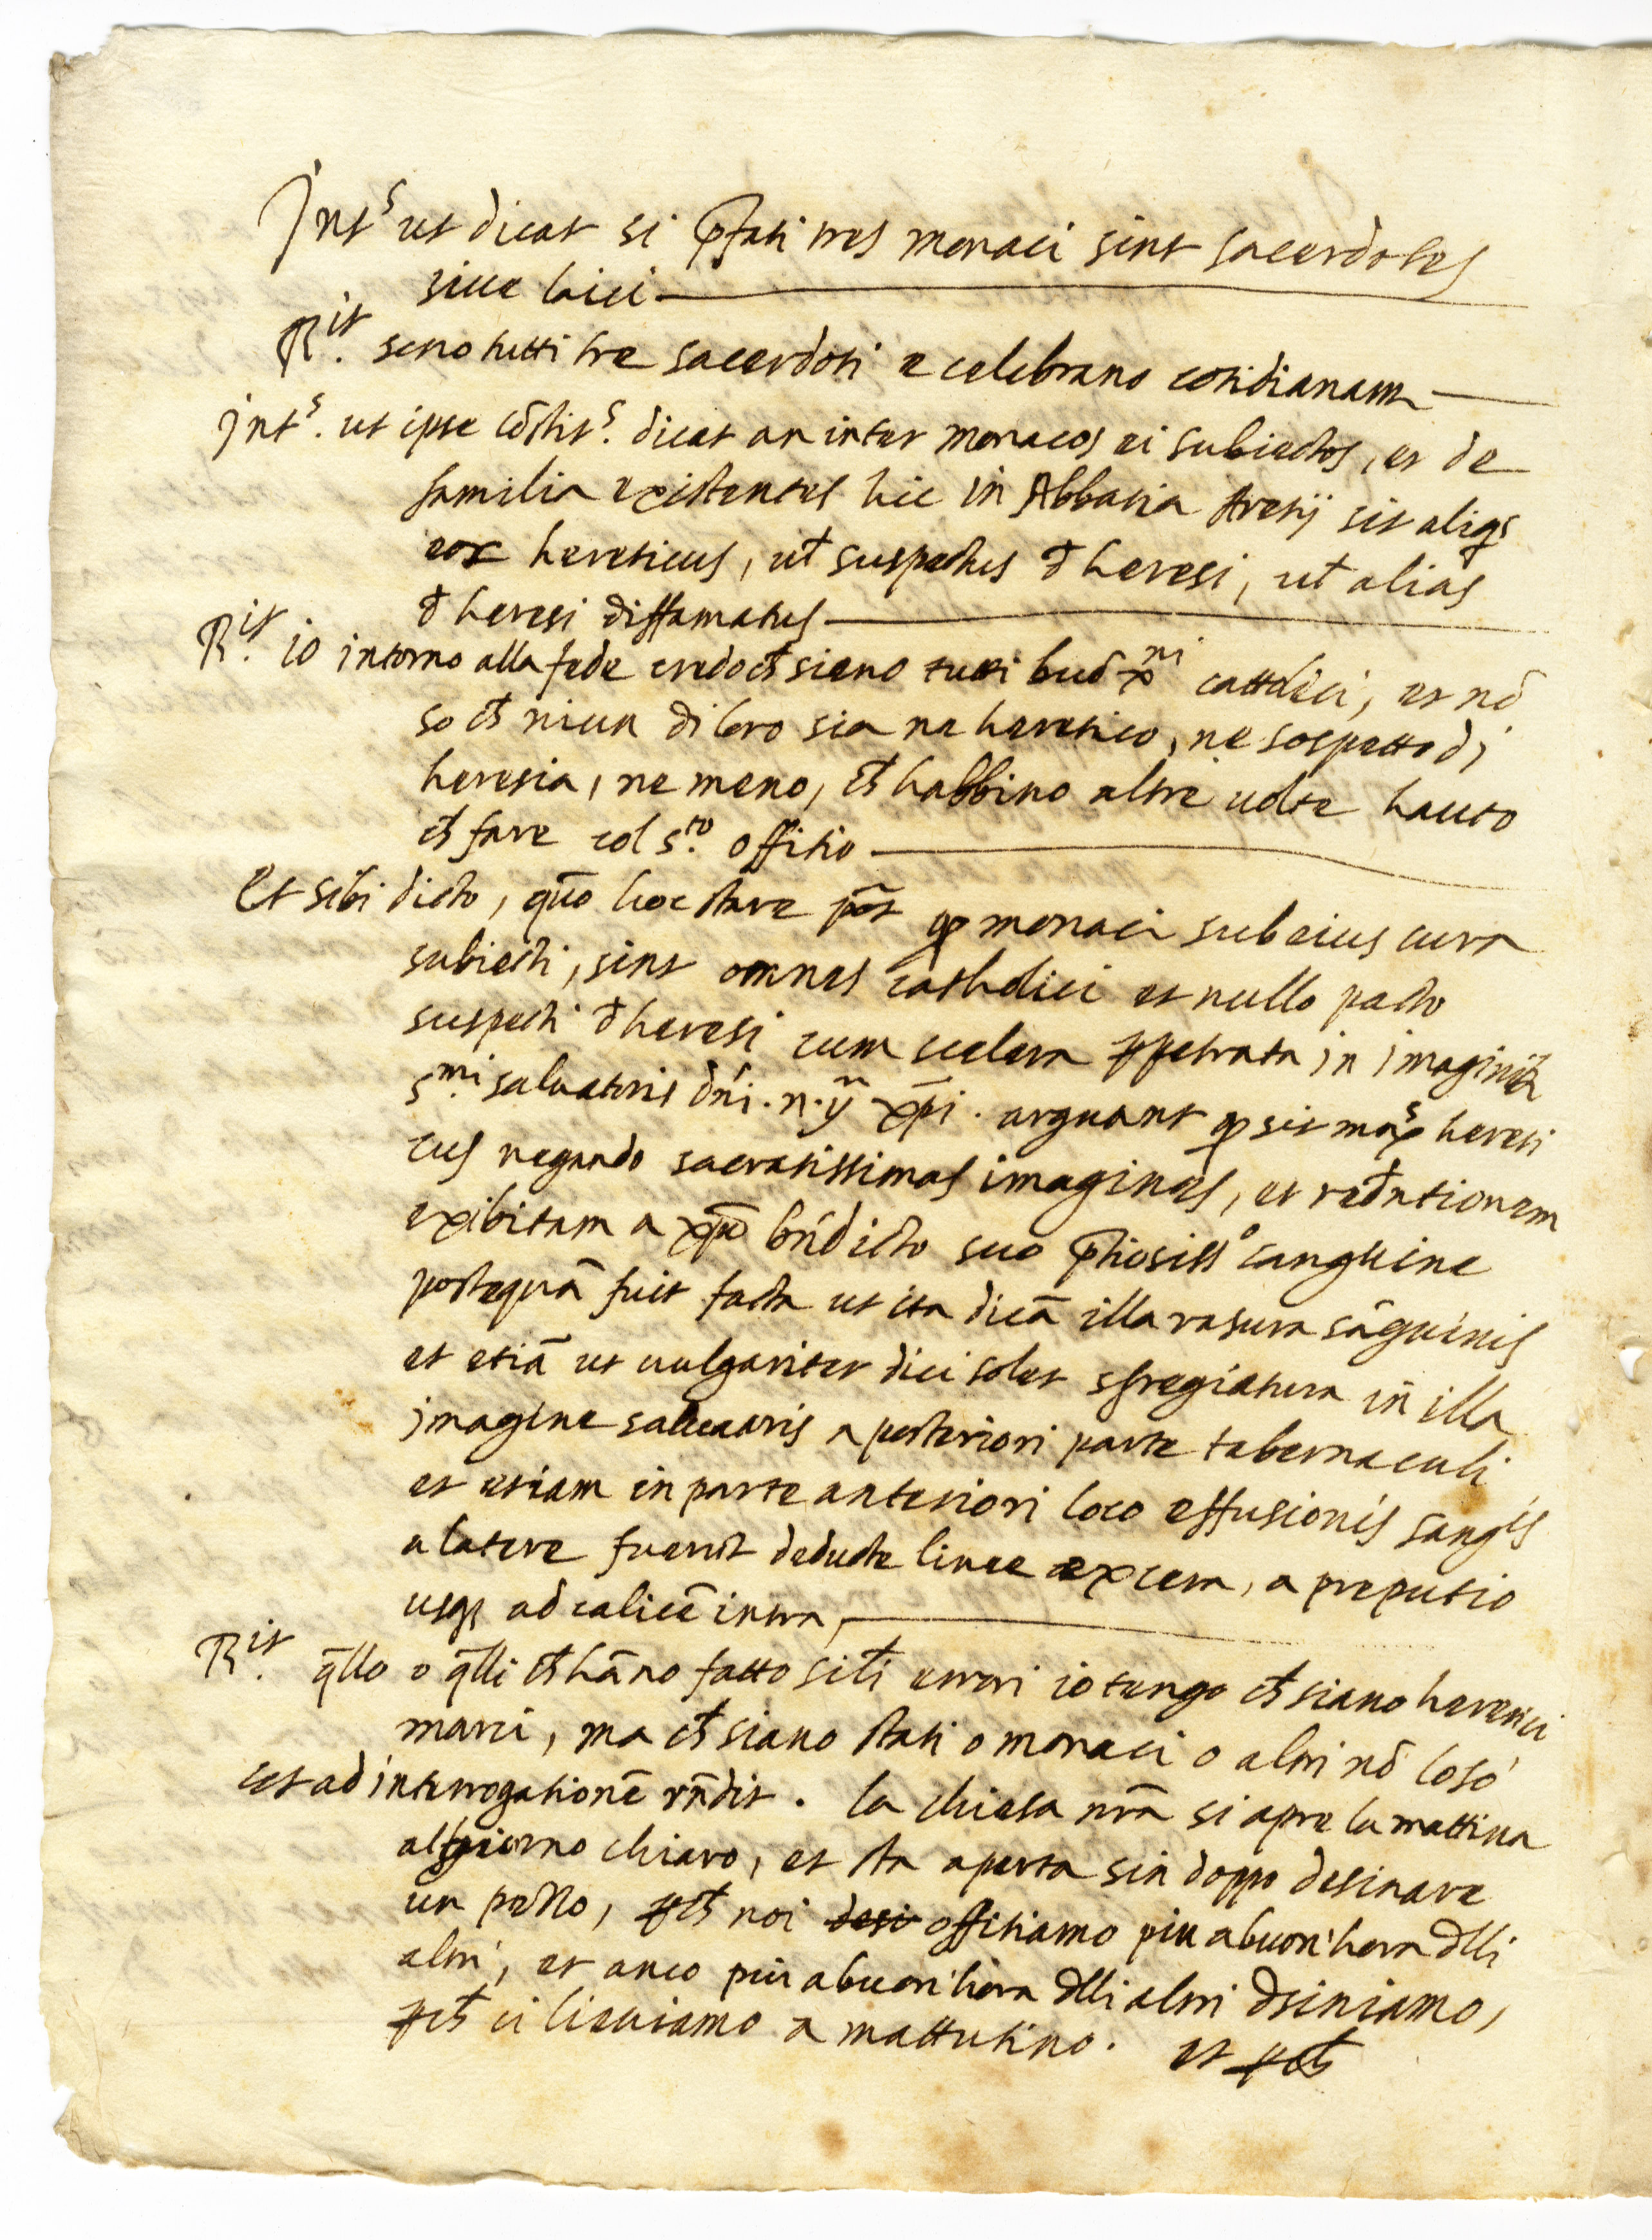 Int.s ut dicat si p̄fati tres monaci sint sacerdotes
siue laici
R.it sono tutti tre sacerdoti e celebrano cotidianam.
Int.s ut ipse cōstit.s dicat an inter monacos ei subiectos, et de
familia existentes hic in Abbatia Aretij sit aliqs
eor hereticus, ut̄ suspectus d̄ heresi, ut̄ alias
d̄ heresi diffamatus
R.it io intorno alla fede credo ch̄ sieno tutti buō xni cattolici, et nō
so ch̄ niun di loro sia ne heretico, ne sospetto di
heresia, ne meno, ch̄ habbino altre uolte hauto
ch̄ fare col s.to offitio
Et sibi dicto, quō hoc stare pōt qp monaci sub eius cura
subiecti, sint omnes catholici et nullo pacto
suspecti d̄ heresi cum scelera ppetrata in imaginib
s.mi saluatoris dn̄i. n. yͫ xp̄i. arguant qp sit max.s hereti
cus negando sacratissimas imagines, et red̄ntionem
exibitam a xpō bn̄dicto suo p̄tiosiss.o sanguine
postequā fuit facta ut ita dicā illa rasura sāguinis
et etiā ut uulgariter dici solet sfregiatura in illa
imagine saluatoris a posteriori parte tabernaculi
et etiam in parte anteriori loco effusionis sang.is
a latere fuerīt deducte linee ex cera, a preputio
usqs ad calicē intra
R.it q̄llo o q̄lli ch̄ hāno fatto sil̄i errori io tengo ch̄ siano heretici
marci, ma ch̄ siano stati o monaci o altri nō lo so
et ad interrogationē rn̄dit. la chiesa nr̄a si apre la mattina
al giorno chiaro, et sta aperta sin doppo desinare
un pezzo, pch̄ noi desi offitiamo piu a buon'hora d̄lli
altri, et anco piu a buon'hora d̄lli altri dsiniamo,
pch̄ ci lieuiamo a mattutino. et pch̄